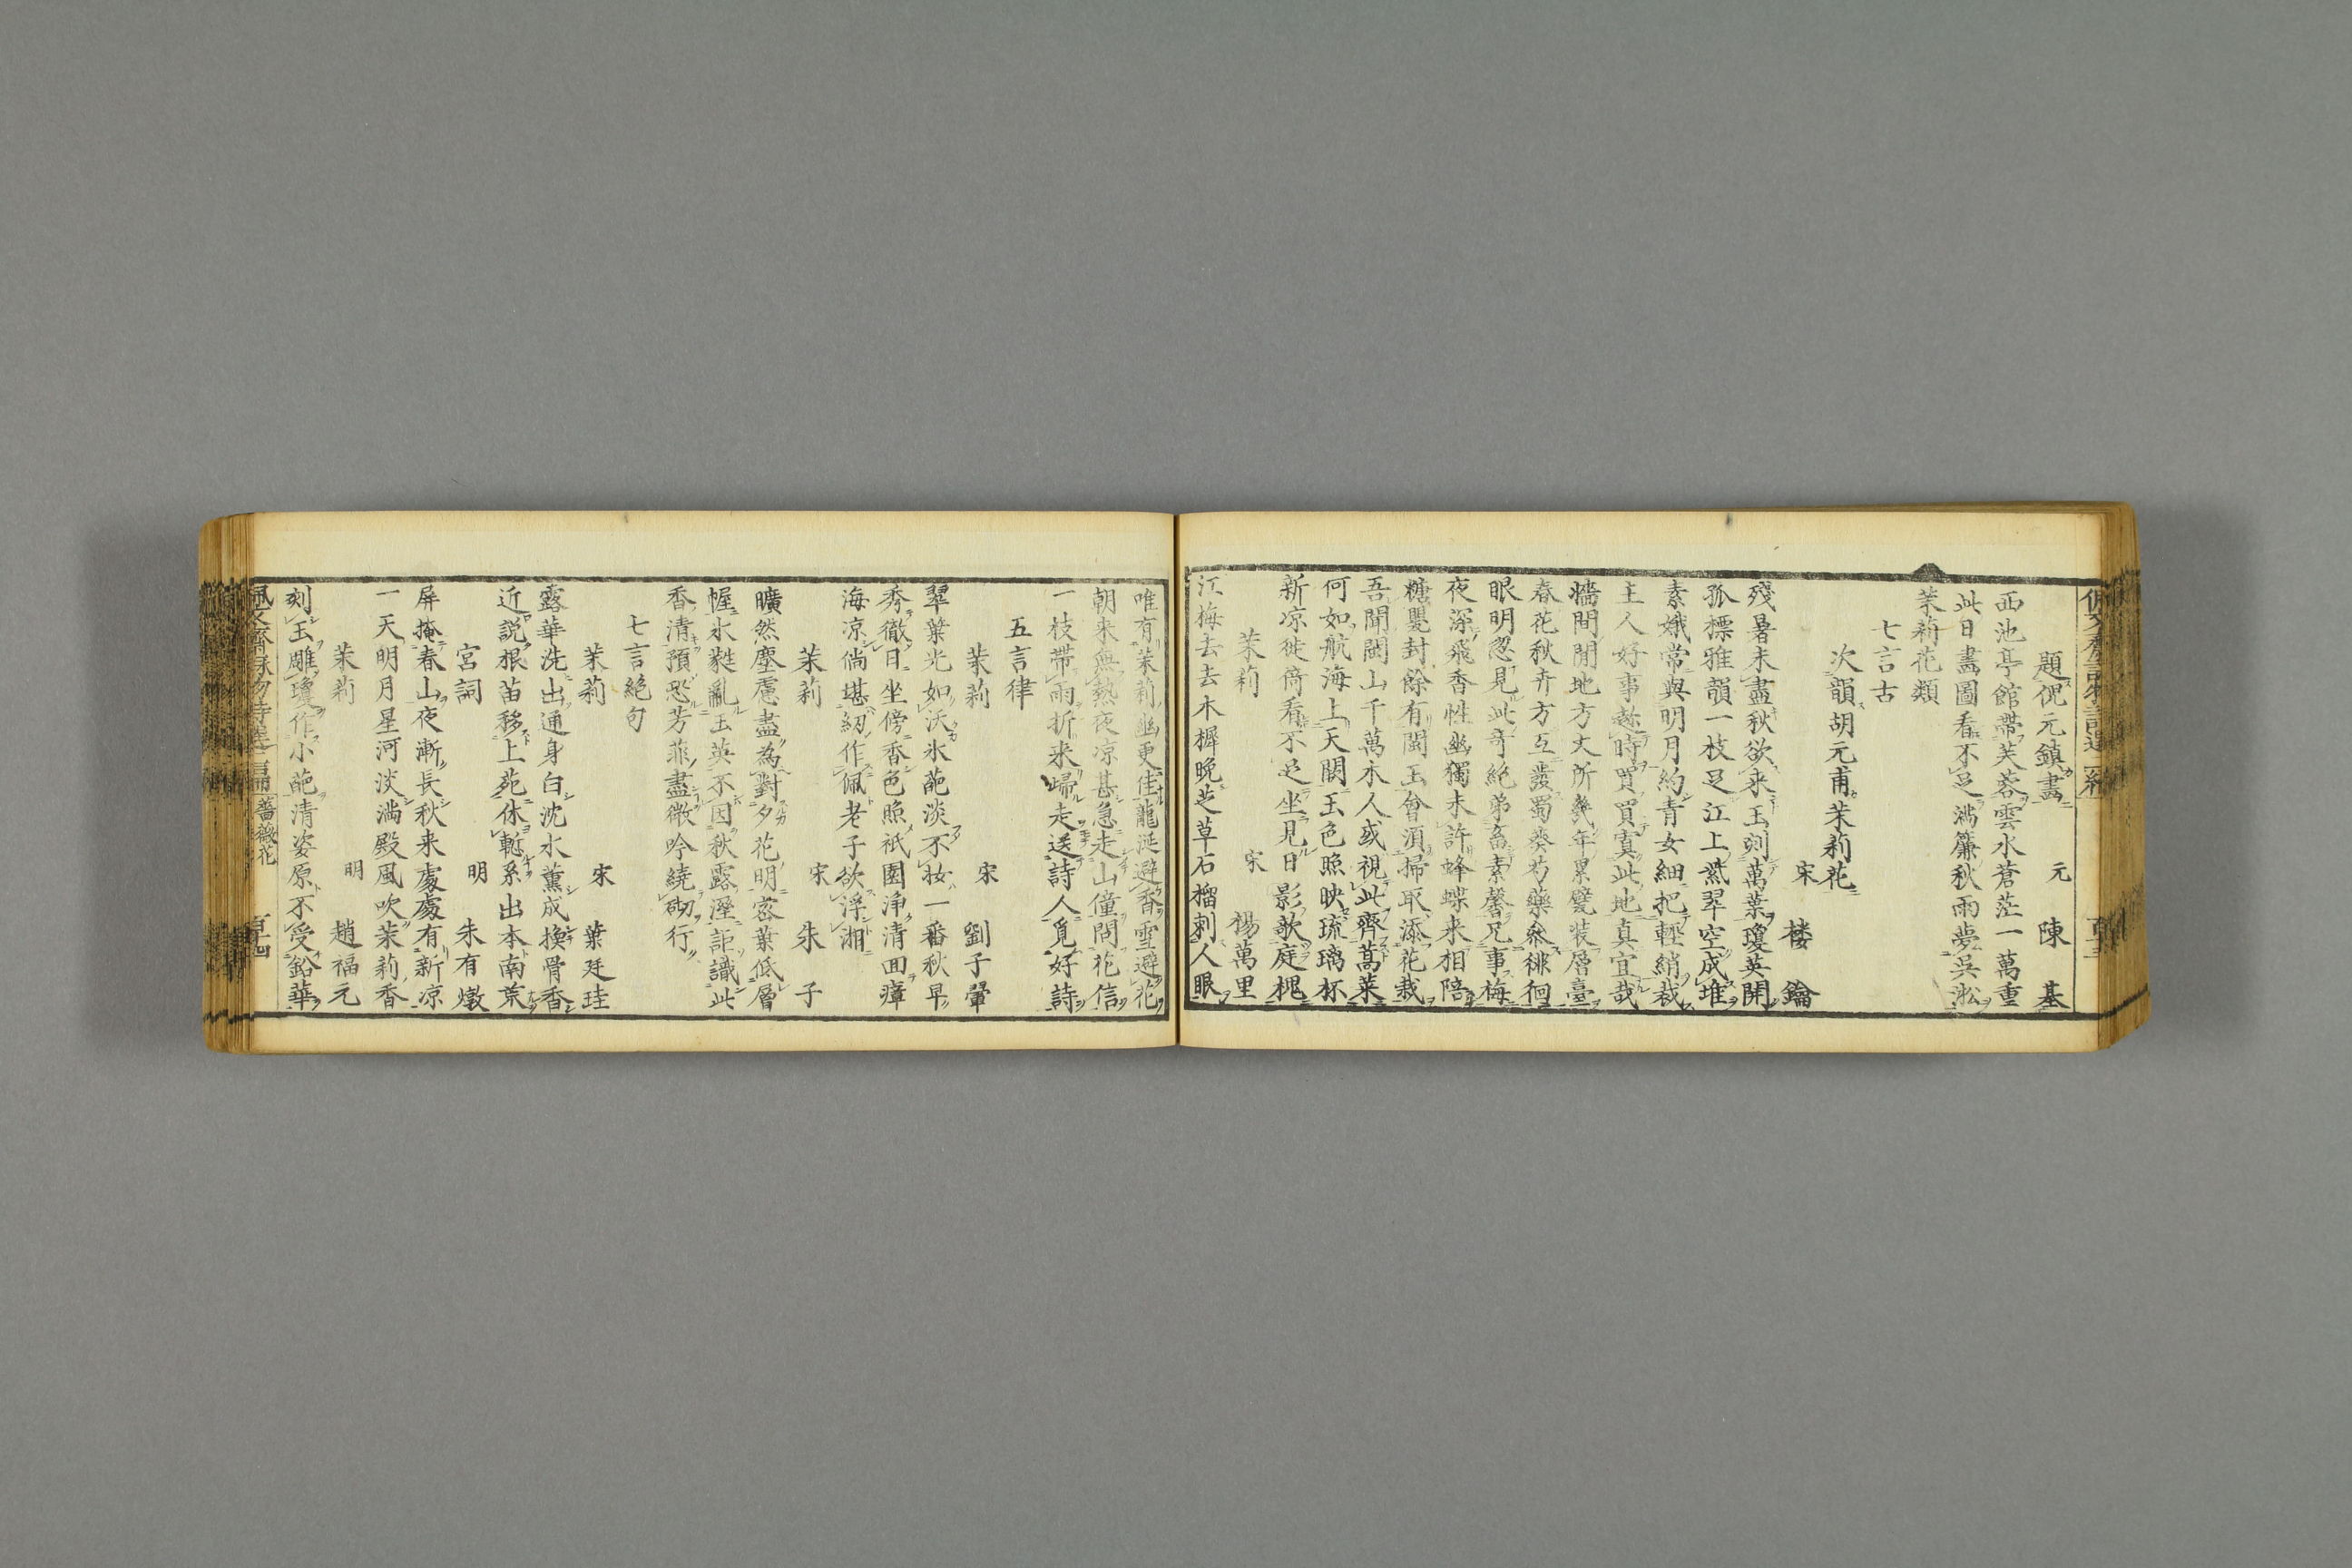 題倪元鎮畫 元 陳基
西池亭館帶芙蓉雲水蒼茫一萬重
此日畫圖看不足滿簾秋雨夢吳淞
茉莉花類
七言古
次韻胡元甫茉莉花
宋 楼鑰
殘暑未盡秋欲来玉刻萬葉瓊英開
孤標雅韻一枝足江上紫翠空成堆
素娥常與明月約青女細把輕綃裁
主人好事趁時買買寘此地真宜哉
牆間閒地方丈所幾年累甓裝層臺
春花秋卉方互發蜀葵芍藥參徘徊
眼明忽見此奇絶弟畜素馨兄事梅
夜深飛香性幽獨未許蜂蝶来相陪
糖甖封餘有閩玉會湏掃取添花栽
吾聞閩山千萬木人或視此齊蒿萊
何如航海上天闕玉色照映琉璃杯
新凉徙倚看不足坐見日影歌庭槐
茉莉 宋 楊萬里
江梅去去木樨晚芝草石榴刺人眼
唯有茉莉幽更佳龍涎避香雪避花
朝来無熱夜凉甚急走山僮問花信
一枝帶雨折来歸走送詩人覓好詩
五言律
茉莉 宋 劉子翬
翠葉光如沃氷葩淡不妆一番秋早
秀徹日坐傍香色照祇園淨清回瘴
海凉倘堪紉作佩老子欲浮湘
茉莉 宋 朱子
曠然塵慮盡為對夕花明密葉低層
幄氷蕤亂玉英不因秋露溼詎識此
香清預恐芳菲盡微吟繞砌行
七言絶句
茉莉 宋 葉廷珪
露華洗出通身白沈水薰成換骨香
近説根苗移上苑休慙系出本南荒
宮詞 明 朱有燉
屏掩春山夜漸長秋来處處有新凉
一天明月星河淡滿殿風吹茉莉香
茉莉 明 趙福元
刻玉雕瓊作小葩清姿原不受鉛華
薔薇花